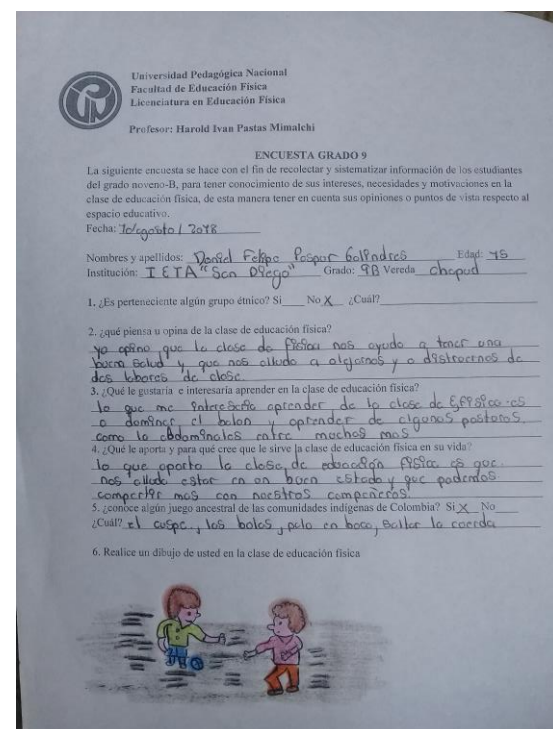 Universidad Pedagógica Nacional
Facultad de Educación Física
Licenciatura en Educación Física
Profesor: Harold Ivan Pastas Mimalchi
ENCUESTA GRADO 9
La siguiente encuesta se hace con el fin de recolectar y sistematizar información de los estudiantes
del grado noveno-B, para tener conocimiento de sus intereses, necesidades y motivaciones en la
clase de educación física, de esta manera tener en cuenta sus opiniones o puntos de vista respecto al
espacio educativo.
Fecha: 10/agosto / 2018
Nombres y apellidos: Daniel Felipe Paspur Galindres Edad: 15
Institución: I E T A "San Diego" Grado: 9B Vereda chapud
1. ¿Es perteneciente algún grupo étnico? Si No X ¿Cuál?
2. ¿qué piensa u opina de la clase de educación física?
yo opino que la clase de física nos ayuda a tener una
buena salud y que nos alluda a alejarnos y a distraernos de
las labores de clase
3. ¿Qué le gustaría e interesaría aprender en la clase de educación física?
lo que me interesaria aprender de la clase de E,física es
a dominar el balon y aprender de algunas posturas
como la abdominales entre muchas mas
4. ¿Qué le aporta y para qué cree que le sirve la clase de educación física en su vida?
lo que aporta la clase de educación física es que
nos alluda estar en un buen estado y que podemos
compartir mas con nuestros compañeros.
5. ¿conoce algún juego ancestral de las comunidades indígenas de Colombia? Si X No
¿Cuál? el cuspe, las bolas, palo en boca, Saltar la cuerda
6. Realice un dibujo de usted en la clase de educación física